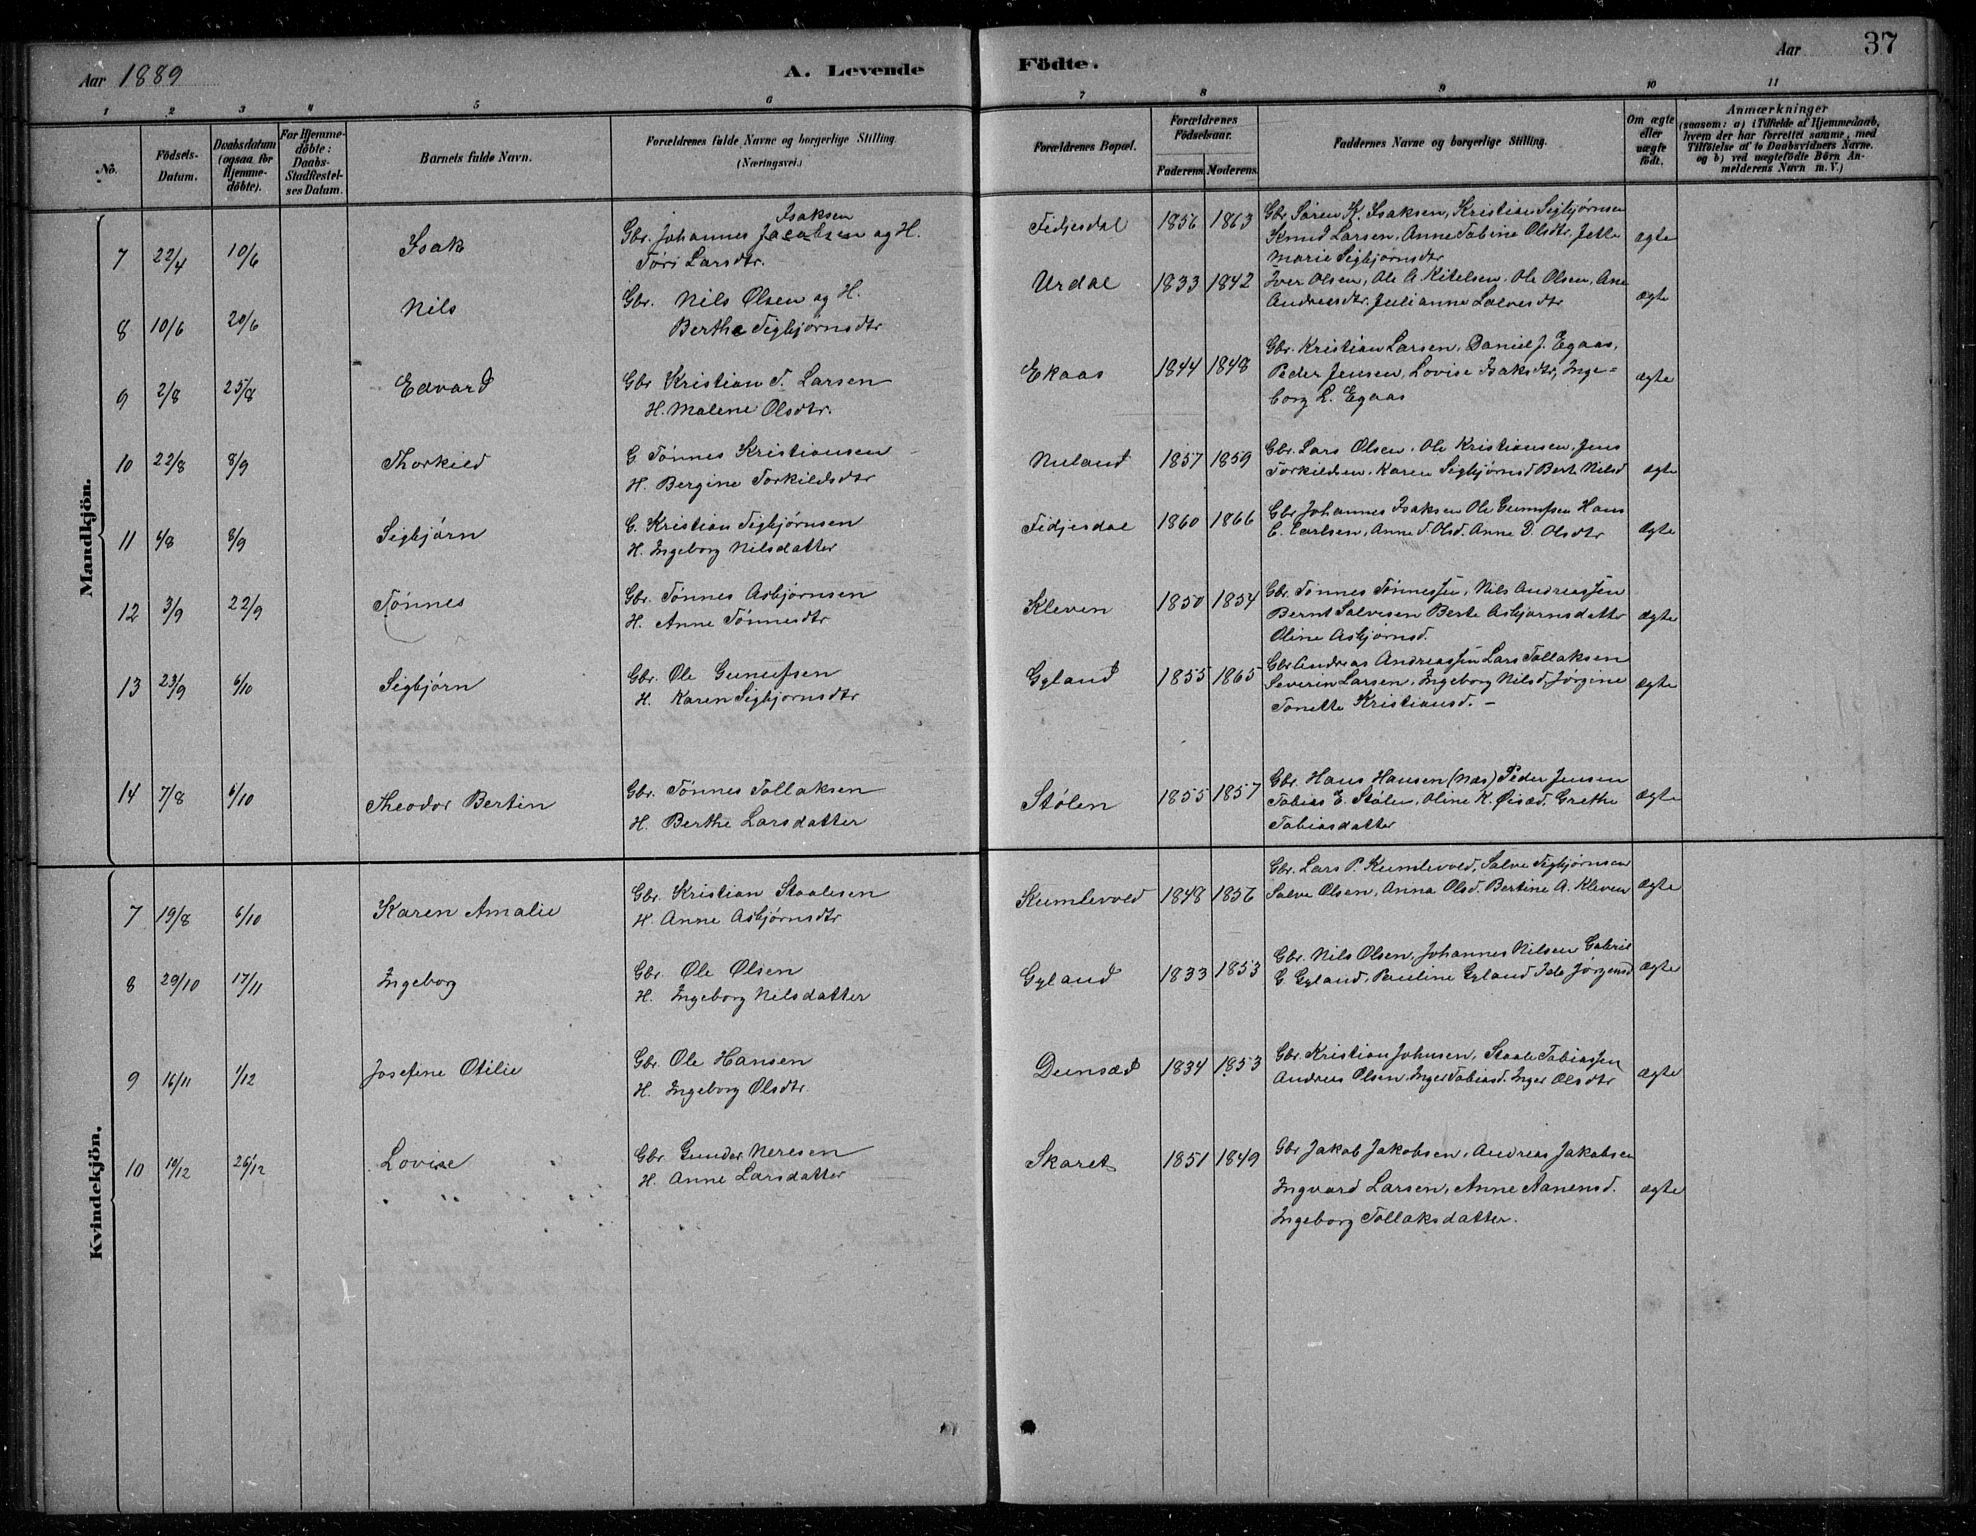 Aar 1889
A. Levende
Födte.
Aar
37
1 2 3 4 5 6 7 8 9 10 11
No.
Födsels-
Datum.
Daabsdatum
(ogsaa for
Hjemme-
döbte).
For Hjemme-
döbte:
Daabs-
Stadfæstel-
ses Datum.
Barnets fulde Navn.
Forældrenes fulde Navne og borgerlige Stilling.
(Næringsvei.)
Forældrenes Bopæl.
Forældrenes
Födselsaar.
Faderens. Moderens.
Faddernes Navne og borgerlige Stilling.
Om ægte
eller
uægte
födt.
Anmærkninger
(saasom: a) i Tilfælde af Hjemmedaab,
hvem der har forrettet samme, med
Tilföielse af to Daabsvidners Navne.
og b) ved uægtefödte Börn An-
melderens Navn m. V.)
Mandkjön.
7 22/4 10/6 Isak
Isaksen
Gbr. Johannes Jacobsen og H.
Töri Larsdtr.
Fidjesdal 1856 1863
Gbr Sören K. Isaksen, Kristian Sigbjørnsen
Knud Larsen, Anne Tabine Olsdtr, Jette
Marie Sigbjørnsdtr
ægte
8 10/6 20/6 Nils
Gbr. Nils Olsen og H.
Berthe Sigbjørnsdtr
Urdal 1833 1842
Iver Olsen, Ole A. Kitelsen, Ole Olsen, Ane
Andreasdtr. Julianne Salvesdtr
ægte
9 2/8 25/8 Edvard
Gbr Kristian T. Larsen
H. Malene Olsdtr.
Ekaas 1844 1848
Gbr. Kristian Larsen, Daniel J. Egaas,
Peder Jensen, Lovise Isaksdtr, Inge-
borg L. Egaas
ægte
10 22/8 8/9 Thorkild
G. Tönnes Kristiansen
H. Bergine Torkildsdtr
Nuland 1857 1859
Gbr. Lars Olsen, Ole Kristiansen, Jens
Torkildsen, Karen Sigbjørnsd Bert. Nilsd
ægte
11 4/8 8/9 Sigbjörn
G. Kristian Sigbjørnsen
H. Ingeborg Nilsdatter
Fidjesdal 1860 1866
Gbr Johannes Isaksen Ole Gunufsen Hans
C. Carlsen, Anne T. Olsd. Anne D. Olsdtr
ægte
12 3/9 22/9 Tønnes
Gbr. Tönnes Asbjørnsen
H. Anne Tønnesdtr
Kleven 1850 1854
Gbr. Tønnes Tønnessen, Nils Andreassen
Bernt Salvesen Berte Asbjørnsdatter
Oline Asbjørnsd.
ægte
13 23/9 6/10 Sigbjørn
Gbr. Ole Gunufsen
H. Karen Sigbjørnsdtr
Gyland 1855 1865
Gbr Andreas Andreassen Lars Tollaksen
Severin Larsen, Ingeborg Nilsd, Jørgine
Tonette Kristiansd. -
ægte
14 7/8 6/10 Theodor Bertin
Gbr. Tønnes Tollaksen
H. Berthe Larsdatter
Stølen 1855 1857
Gbr. Hans Hansen (Næs) Peder Jensen
Tobias E. Stølen, Oline K. Øisæd, Grethe
Tobiasdatter
ægte
Kvindekjön.
7 19/8 6/10 Karen Amalie
Gbr. Kristian Staalesen
H. Anne Asbjørnsdtr
Kumlevold 1848 1856
Gbr. Lars P. Kumlevold, Salve Sigbjørnsen
Salve Olsen, Anna Olsd. Bertine A. Kleven
ægte
8 29/10 17/11 Ingeborg
Gbr. Ole Olsen
H. Ingeborg Nilsdatter
Gyland 1833 1853
Gbr. Nils Olsen, Johannes Nilsen Gabriel
G. Gyland, Pauline Gyland Ida Jørgensd
ægte
9 16/11 1/12 Josefine Otilie
Gbr. Ole Hansen
H. Ingeborg Olsdtr
Dunsæd 1834 1853
Gbr. Kristian Johnsen, Staale Tobiassen
Andreas Olsen, Inger Tobiasd. Inger Olsdtr
ægte
10 19/12 26/12 Lovise
Gbr Gunder Neresen
H. Anne Larsdatter
Skaret 1851 1849
Gbr Jakob Jakobsen, Andreas Jakobsen
Ingvard Larsen, Anne Aanensd.
Ingeborg Tollaksdatter.
ægte